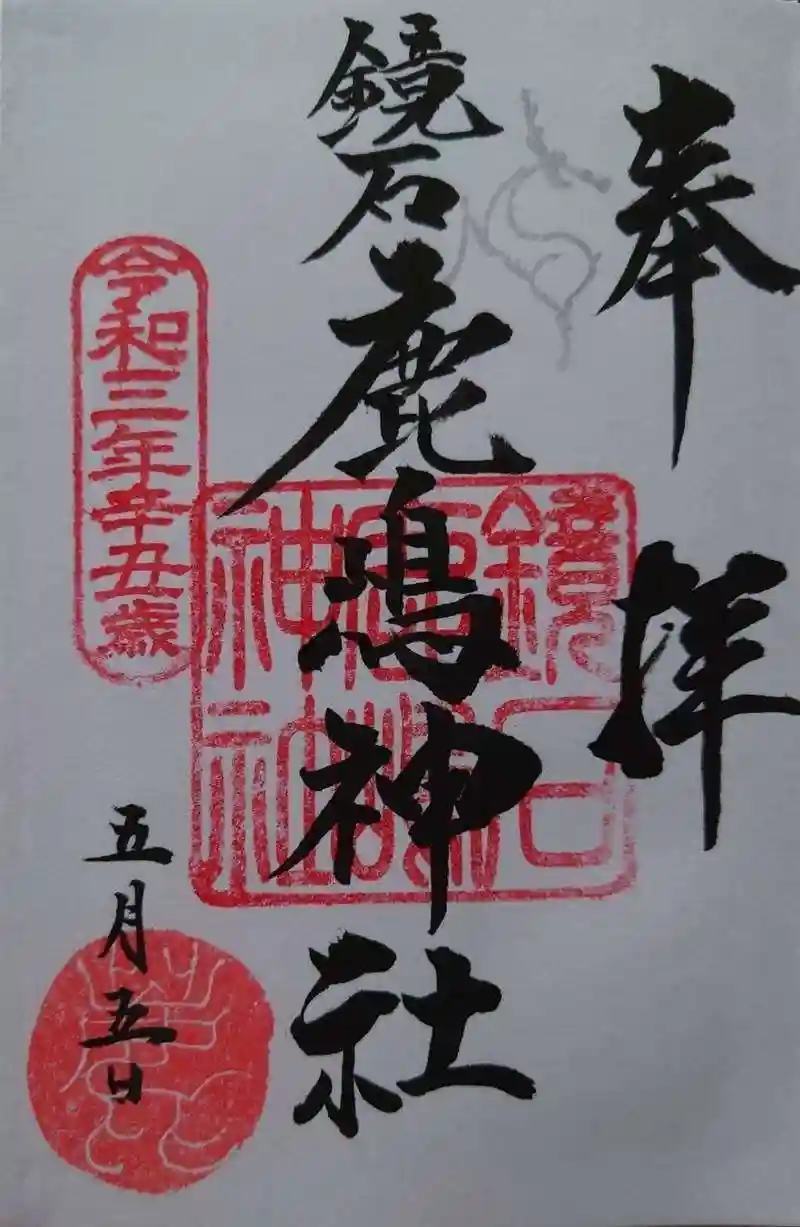 奉拝
鏡石鹿嶋神社
鏡石
鹿嶋
神社
令和三年辛丑歳
五月五日